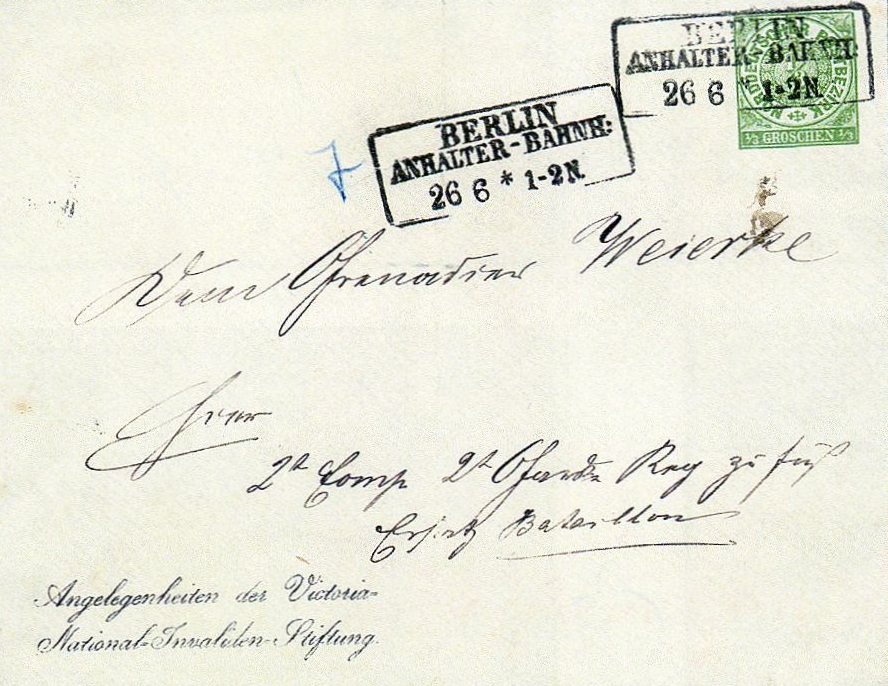 BERLIN
ANHALTER-BAHNH:
26 6 * 1-2N.
NORDDEUTSCHER POSTBEZIRK
1/3 GROSCHEN 1/3
BERLIN
ANHALTER-BAHNH:
26 6 * 1-2N.
7
Dem Grenadier Weierke
2t Comp 2t Garde Reg zu Fuß
Ersatz Bataillon
Angelegenheiten der Victoria-
National-Invaliden-Stiftung.